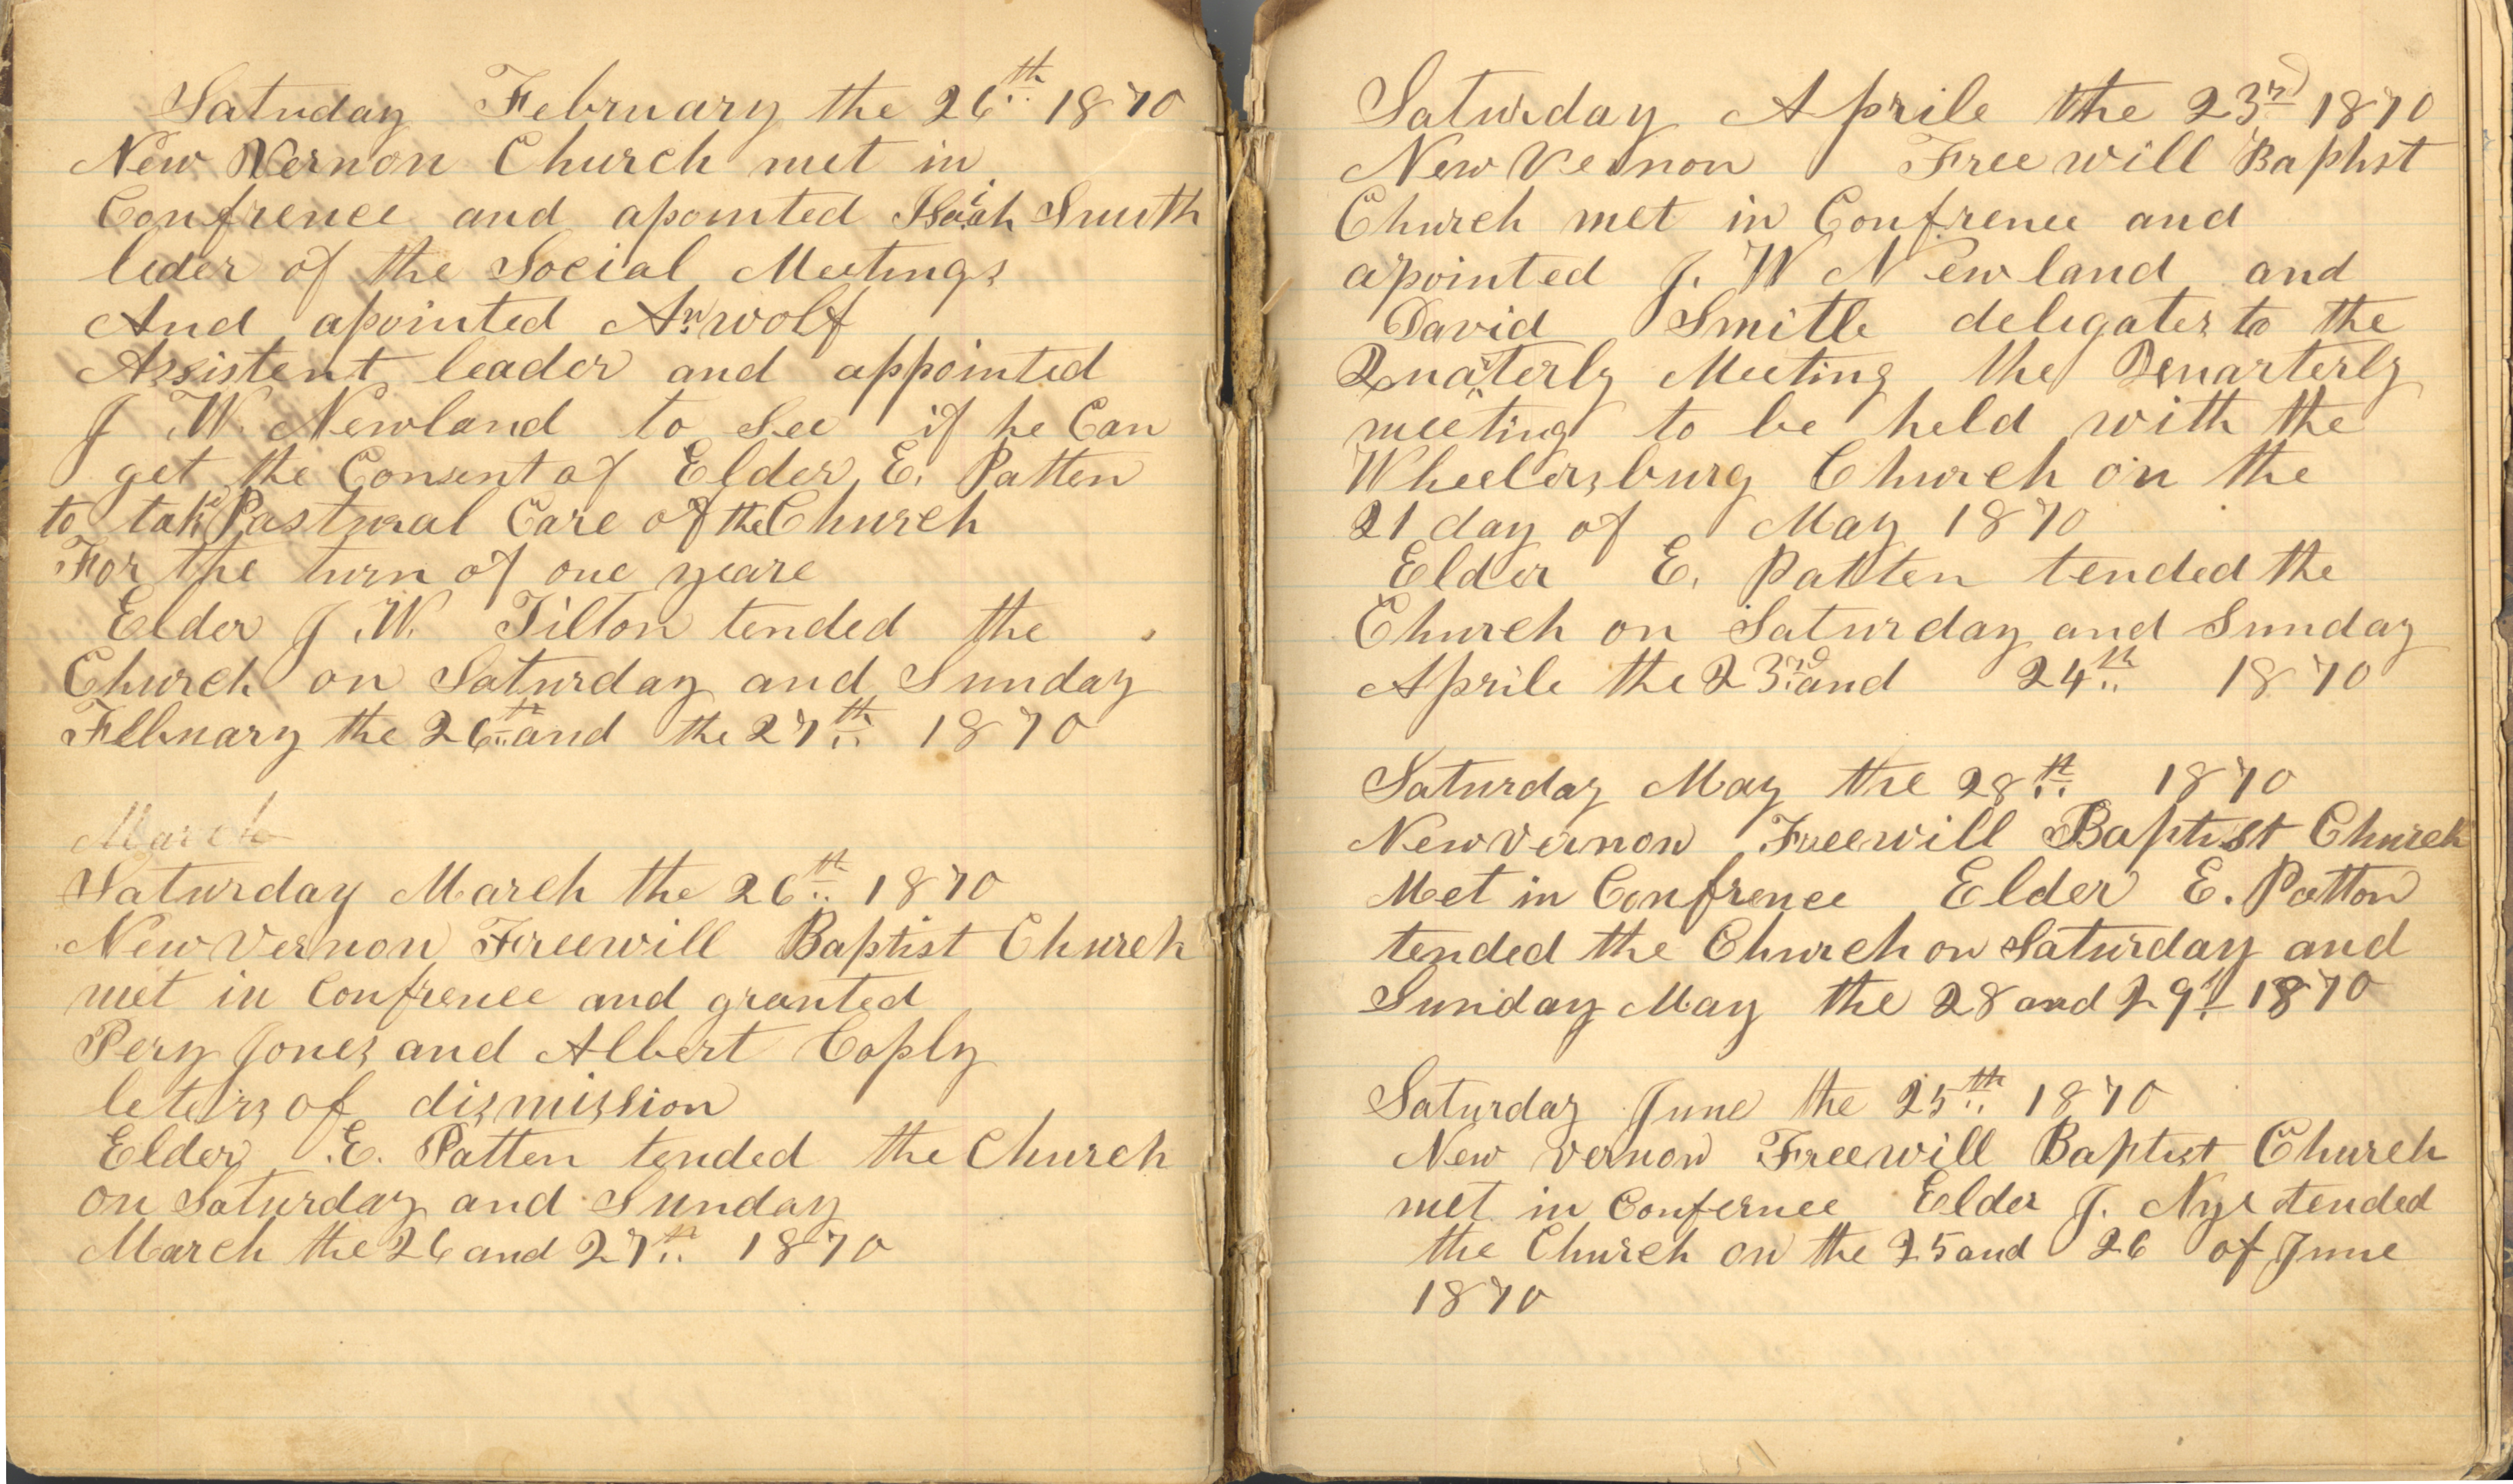 Satuday February the 26th 1870
New Vernon Church met in
Confrence and apointed Isaiah Smith
leder of the Social Meetings
And apointed An wolf
Assistent leader and appointed
J W. Newland to See if he Can
get the Consent of Elder E. Patten
to take Pastural Care of the Church
For the turn of one yeare
Elder J. W. Tilton tended the
Church on Saturday and Sunday
February the 26th and the 27th 1870
March
Saturday March the 26th 1870
New Vernon Freewill Baptist Church
met in Confrence and granted
Pery Jones and Albert Coply
leters of dismission
Elder E. Patten tended the Church
on Saturday and Sunday
March the 26 and 27th 1870
Saturday Aprile the 23rd 1870
New Vernon Free will Baptist
Church met in Confrence and
apointed J. W Newland and
David Smitle delegates to the
Quarterly Meeting the Quarterly
meeting to be held with the
Wheelersburg Church on the
21 day of May 1870
Elder E. Patten tended the
Church on Saturday and Sunday
Aprile the 23rd and 24th 1870
Saturday May the 28th 1870
New Vernon Freewill Baptist Church
Met in Confrence Elder E. Patton
tended the Church on Saturday and
Sunday May the 28 and 29th 1870
Saturday June the 25th 1870
New Vernon Freewill Baptist Church
met in Confernce Elder J. Nye tended
the Church on the 25 and 26 of June
1870